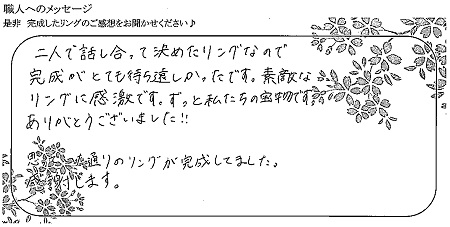 職人へのメッセージ
是非 完成したリングのご感想をお聞かせください♪
二人で話し合って決めたリングなので
完成がとても待ち遠しかったです。素敵な
リングに感激です。ずっと私たちの宝物です。
ありがとうございました!!
通りのリングが完成してました。
します。